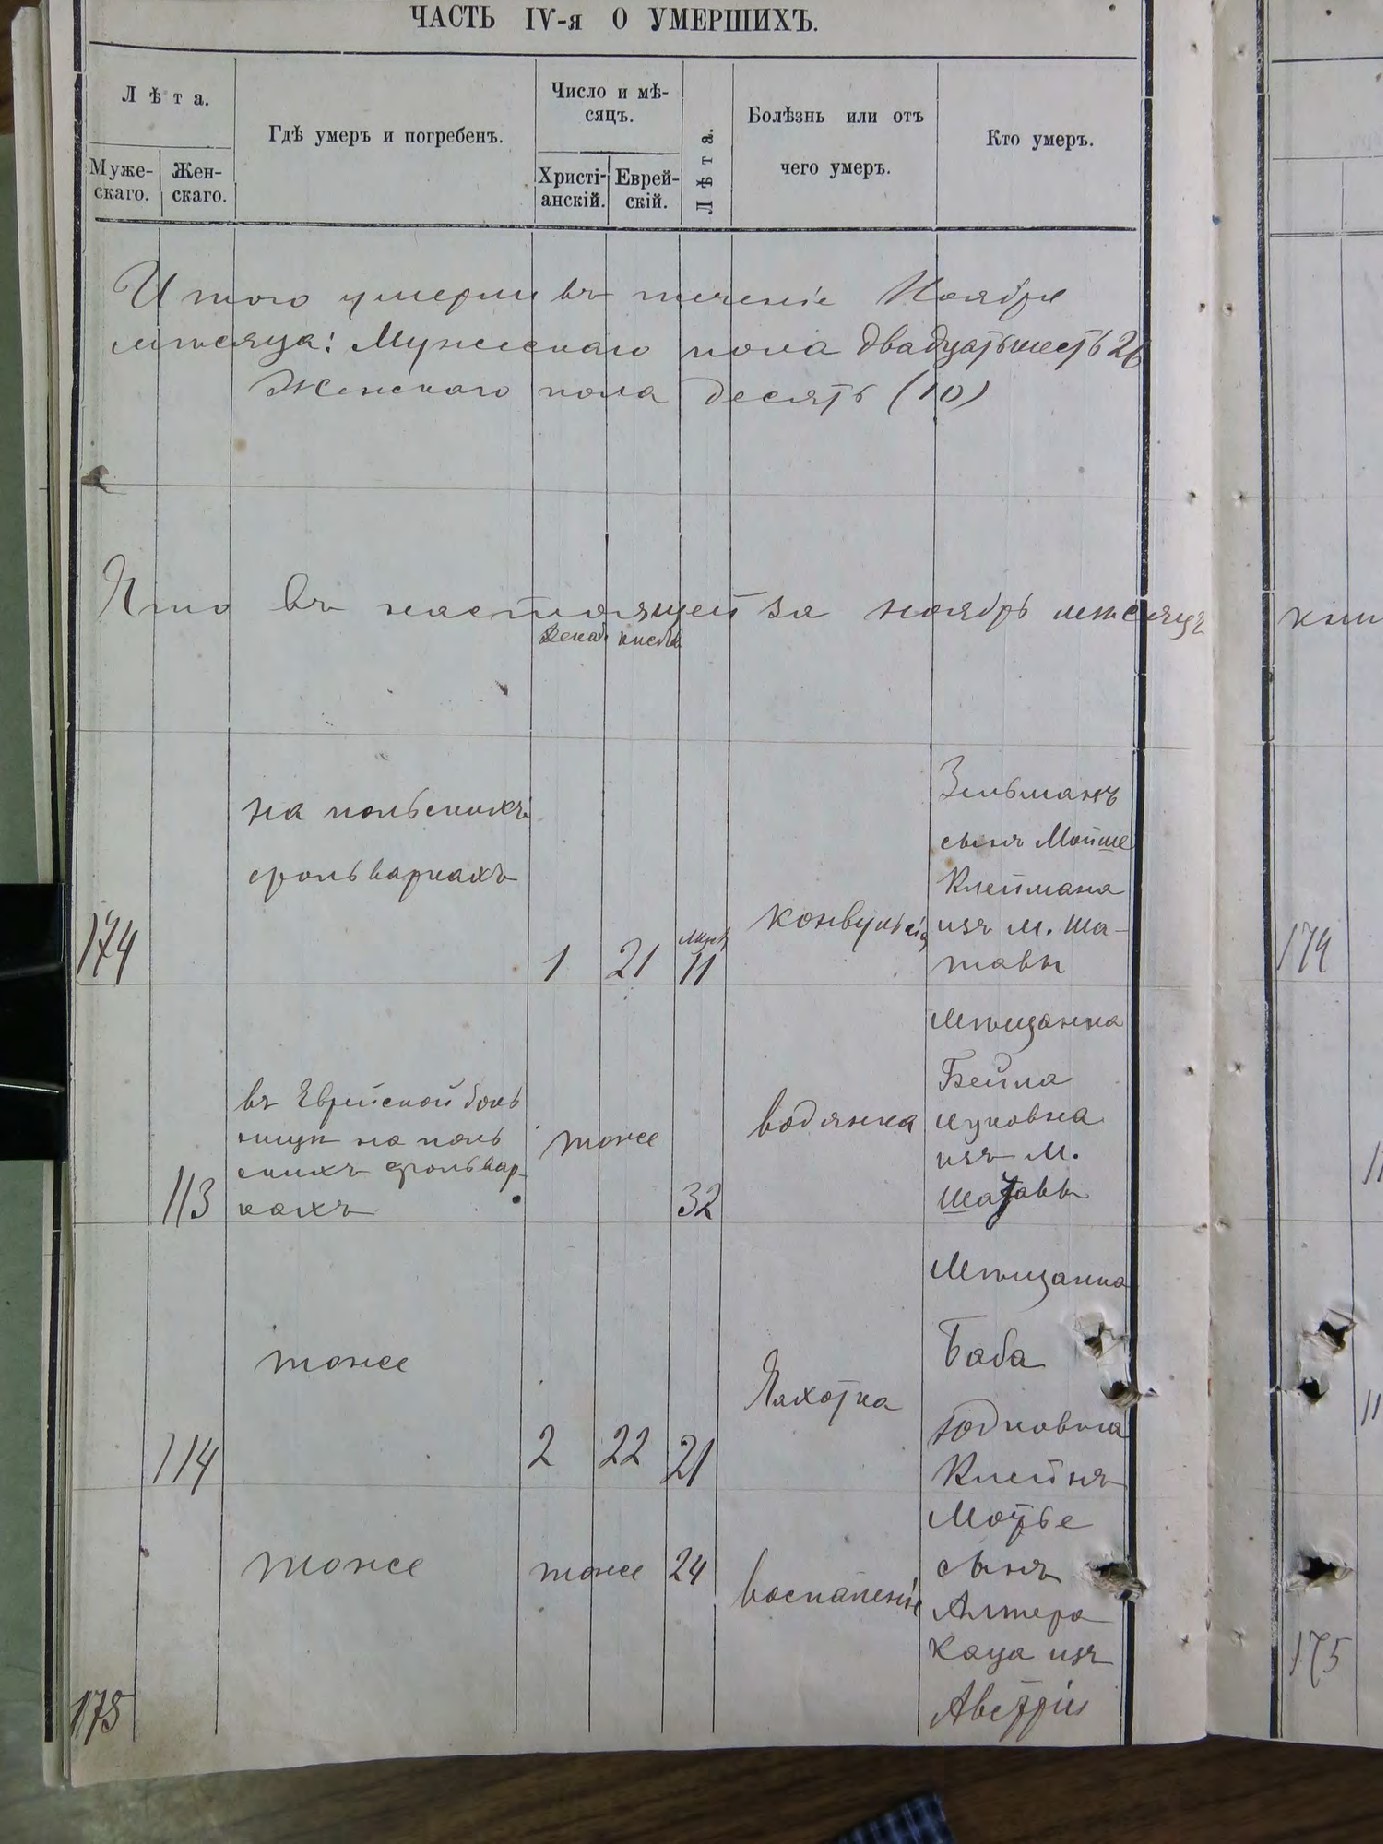 ЧАСТЬ IV-я О УМЕРШИХЪ.
Лѣта.
Муже-
скаго.
Жен-
скаго.
Гдѣ умеръ и погребенъ.
Число и мѣ-
сяцъ.
Христі-
анскій.
Еврей-
скій.
Лѣта.
Болѣзнь или отъ
чего умеръ.
Кто умеръ.
Итого умерли въ теченіе Ноября
мѣсяца: Мужескаго пола двадцать шесть 26
Женскаго пола десять (10)
Что въ настоящей за ноябрь мѣсяцъ
Декаб кислев
174
на польскихъ
фольваркахъ
1
21
11
конвульсія
Зельманъ
сынъ Мойше
Клеймана
изъ м. Ша-
тавы
174
113
въ Еврейской боль
ницѣ на поль
скихъ фольвар-
кахъ
тоже
32
водянка
Мѣщанка
Бейла
Ицковна
изъ м.
Шатавы
11
114
тоже
2
22
21
Чахотка
Мѣщанка
Баба
Юдковна
Клейнъ
11
175
тоже
тоже
24
воспаленіе
Мотье
сынъ
Алтера
Каца изъ
Австріи
175